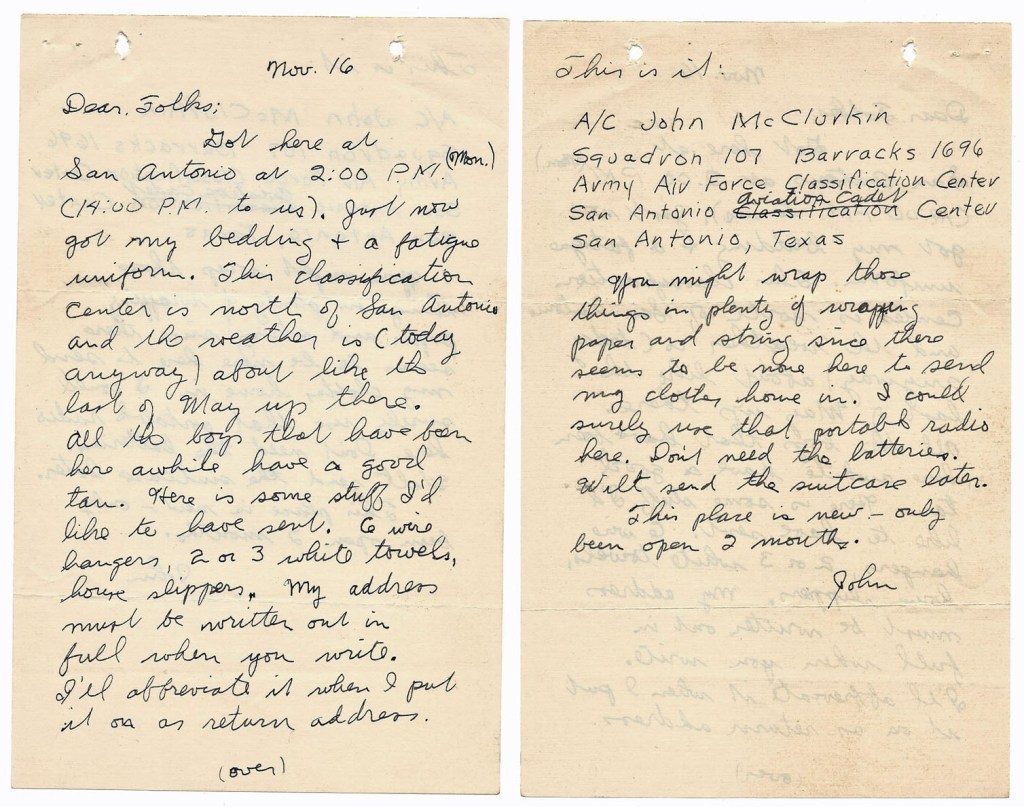 Nov. 16
Dear Folks;
Got here at
San Antonio at 2:00 P.M. (Mon.)
(14:00 P.M. to us). Just now
got my bedding + a fatigue
uniform. This classification
center is north of San Antonio
and the weather is (today
anyway) about like the
last of May up there.
All the boys that have been
here awhile have a good
tan. Here is some stuff I'd
like to have sent. 6 wire
hangers, 2 or 3 white towels,
house slippers,. My address
must be written out in
full when you write.
I'll abbreviate it when I put
it on as return address.
(over)
This is it:
A/C John McClurkin
Squadron 107 Barracks 1696
Army Air Force Classification Center
San Antonio Classification Aviation Cadet Center
San Antonio, Texas
You might wrap those
things in plenty of wrapping
paper and string since there
seems to be none here to send
my clothes home in. I could
surely use that portable radio
here. Don't need the batteries.
Will send the suitcase later.
This place is new – only
been open 2 months.
John